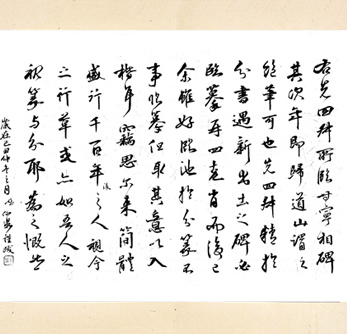 右先四叔所臨曹寧相碑
其次年即歸道山謂之
絕筆可也先四叔精於
分書遇新出土之碑必
臨摹再四克肖而後已
余雖好臨池於分篆不
事臨摹但取其意以入
楷耳竊思尓來簡體
盛行千百年後之人視今
之行草或亦如吾人之
視篆與分耶為之慨然
歲在己酉仲冬之月